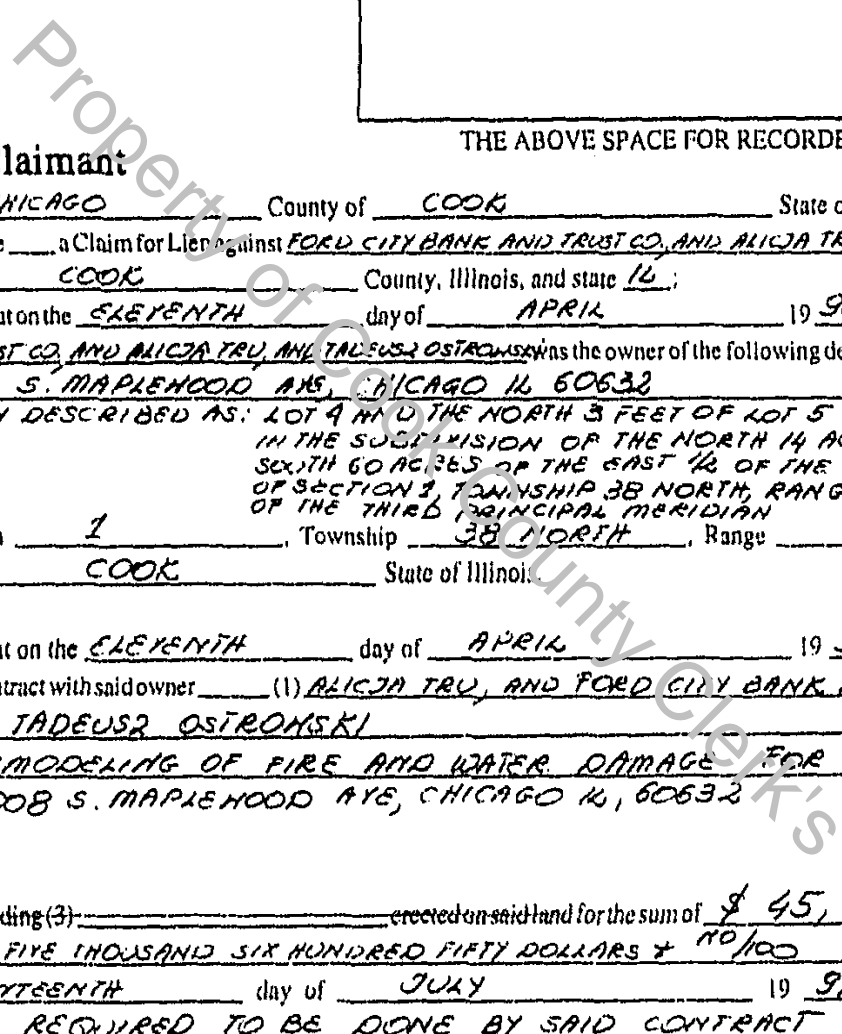 THE ABOVE SPACE FOR RECORDE
laimant
HICAGO County of COOK State o
e a Claim for Lien against FORD CITY BANK AND TRUST CO, AND ALICJA TR
COOK County, Illinois, and state IL ;
at on the ELEVENTH day of APRIL 19 9
ST CO, AND ALICJA TRU, AND TADEUSZ OSTROWSKI was the owner of the following de
S. MAPLEWOOD AVE, CHICAGO IL 60632
Y DESCRIBED AS: LOT 4 AND THE NORTH 3 FEET OF LOT 5
IN THE SUBDIVISION OF THE NORTH 14 AC
SOUTH 60 ACRES OF THE EAST 1/2 OF THE
OF SECTION 1, TOWNSHIP 38 NORTH, RANG
OF THE THIRD PRINCIPAL MERIDIAN
1 , Township 38 NORTH , Range
COOK State of Illinois.
at on the ELEVENTH day of APRIL 19
tract with said owner (1) ALICJA TRU, AND FORD CITY BANK
TADEUSZ OSTROWSKI
MODELING OF FIRE AND WATER DAMAGE FOR
008 S. MAPLEWOOD AVE, CHICAGO IL, 60632
ding (3) erected on said land for the sum of $ 45,
FIVE THOUSAND SIX HUNDRED FIFTY DOLLARS & NO/100
NTEENTH day of JULY 19 9
REQUIRED TO BE DONE BY SAID CONTRACT
Property of Cook County Clerk's